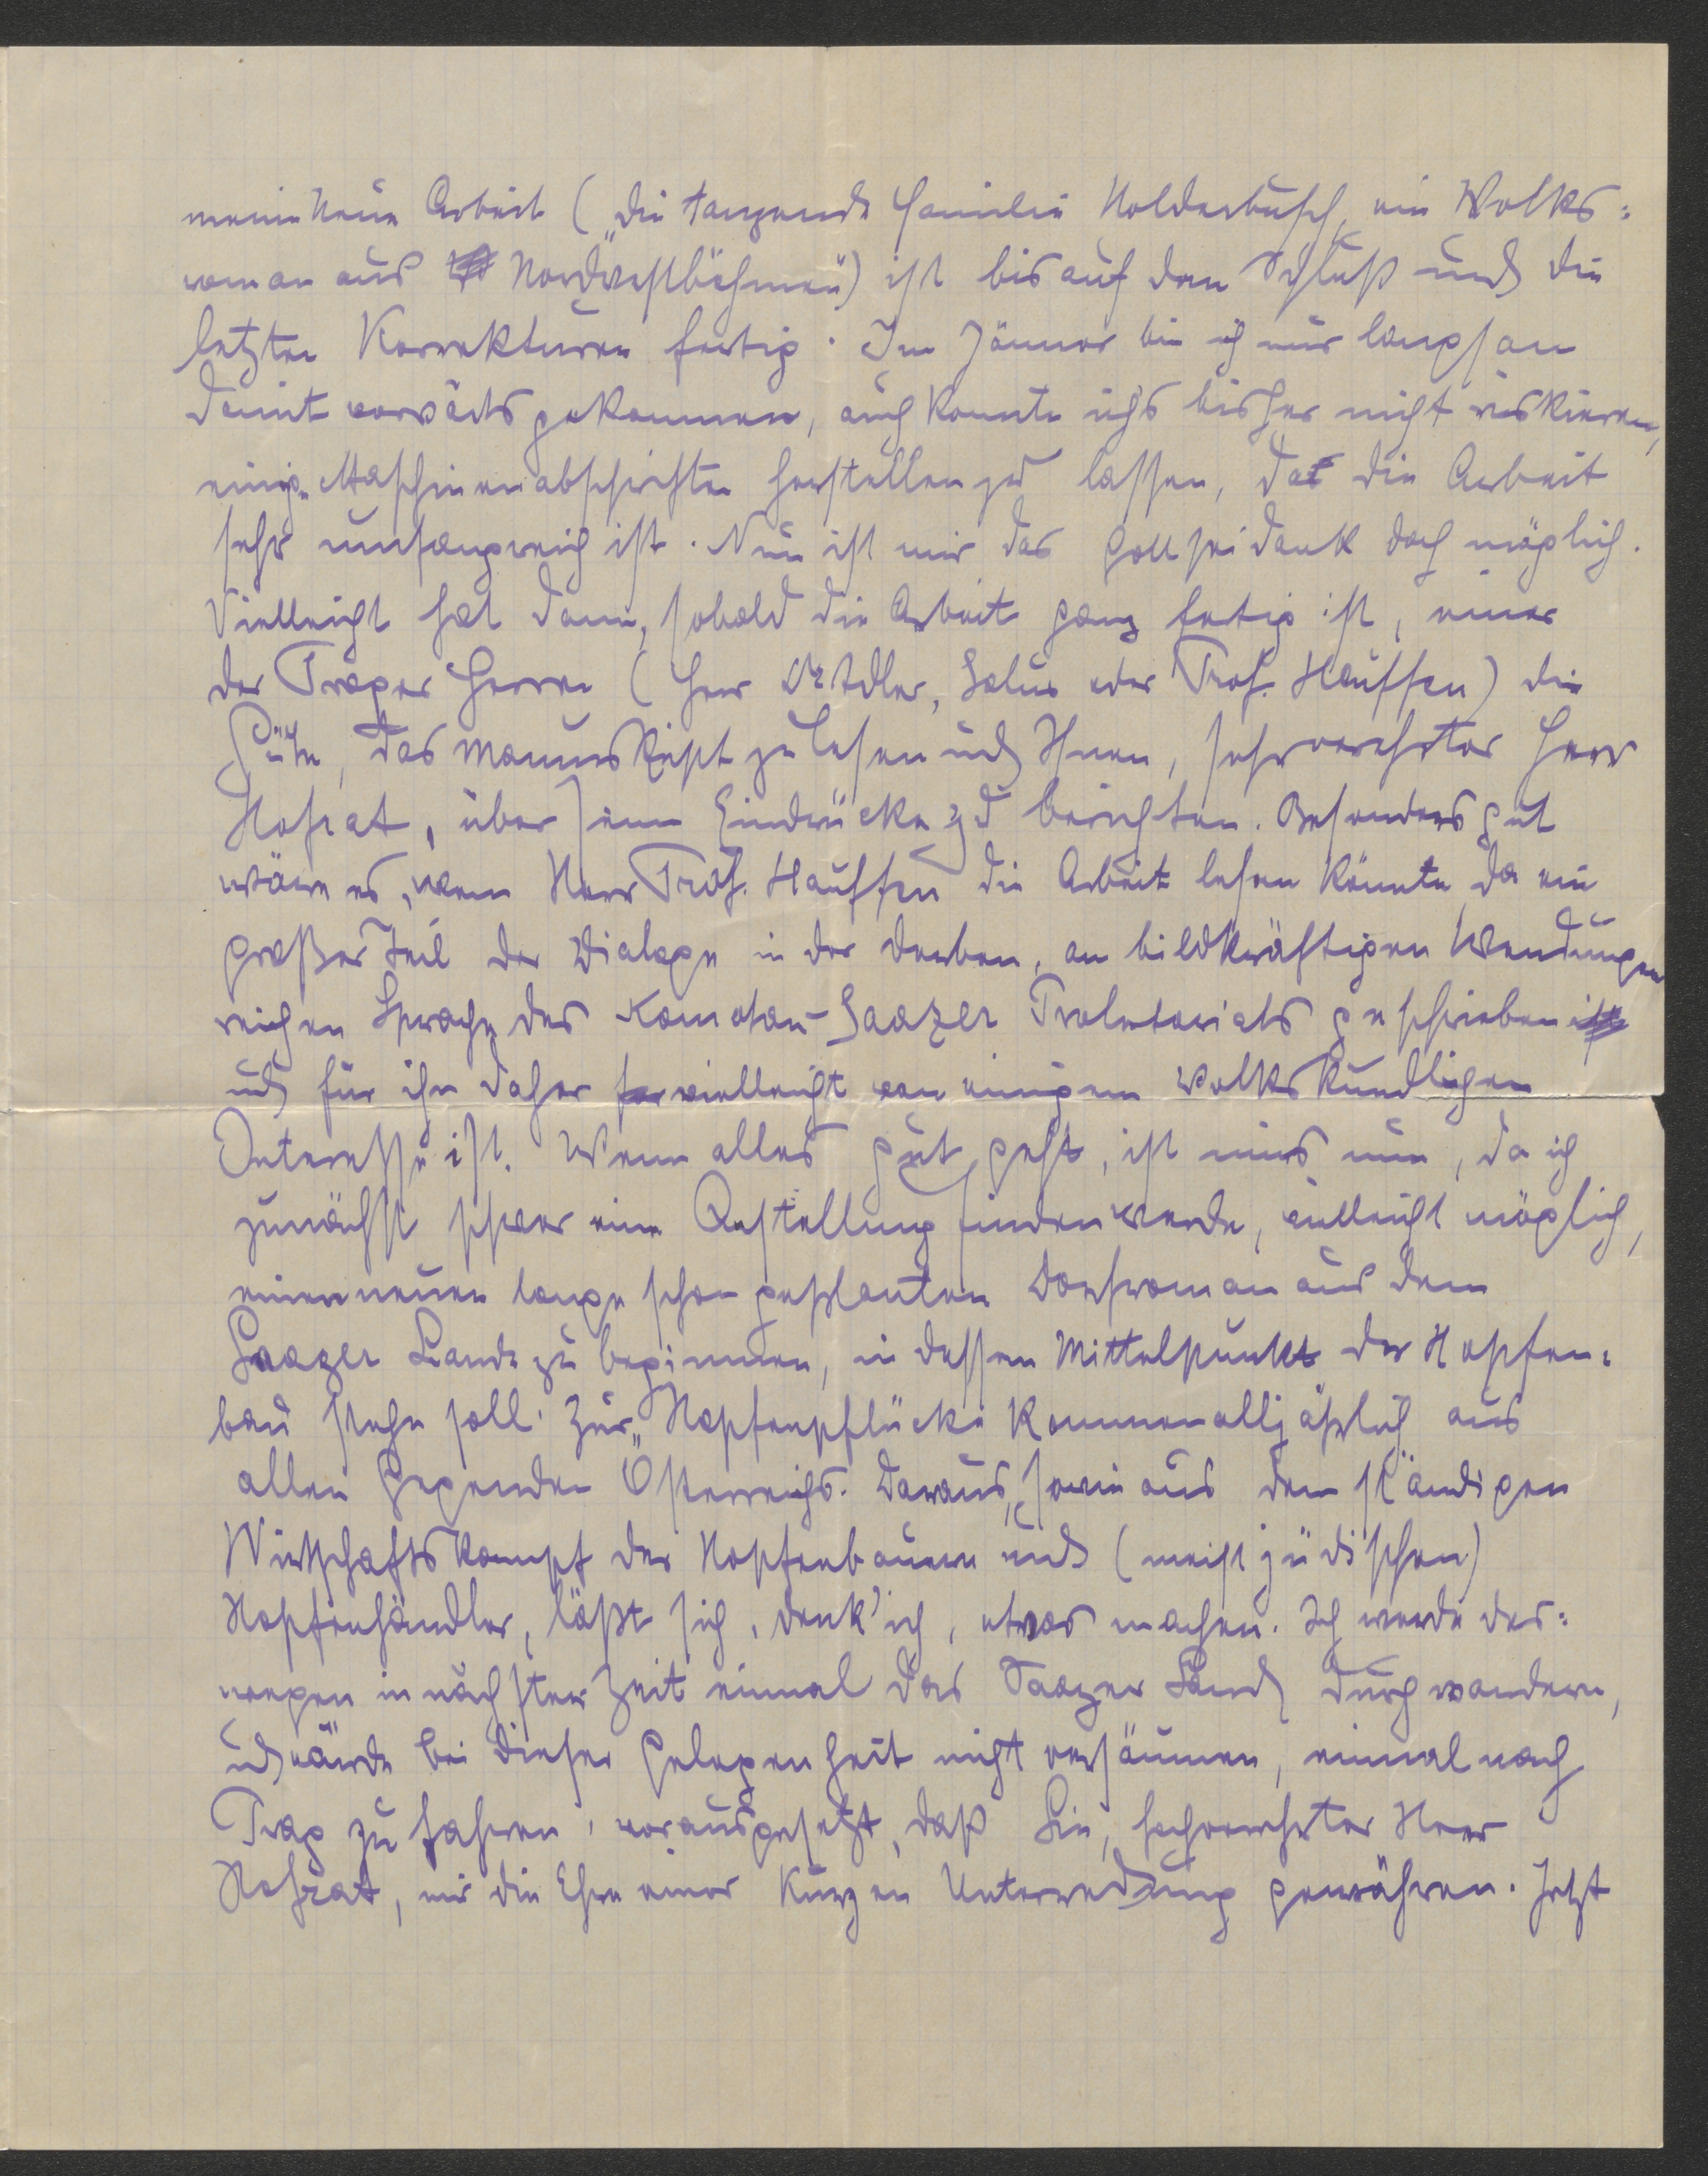 meine neue Arbeit („Die tanzende Familie Holderbusch, ein Volks=
roman aus Nordwestböhmen“) ist bis auf den Schluß und die
letzten Korrekturen fertig. Im Jänner bin ich nur langsam
damit vorwärts gekommen, auch konnte ichs bisher nicht riskieren,
einige Maschinenabschriften herstellen zu lassen, da die Arbeit
sehr umfangreich ist. Nun ist mir das gottseidank doch möglich.
Vielleicht hat dann, sobald die Arbeit ganz fertig ist, einer
der Prager Herren (Herr Dr Adler, Salus oder Prof. Hauffen) die
Güte, das Manuskript zu lesen und Ihnen, sehrverehrter Herr
Hofrat, über seine Eindrücke zu berichten. Besonders gut
wäre es, wenn Herr Prof. Hauffen die Arbeit lesen könnte, da ein
großer Teil der Dialoge in der derben, an bildkräftigen Wendungen
reichen Sprache des Komotau-Saazer Proletariats geschrieben
und für ihn daher vielleicht von einigem volkskundlichen
Interesse ist. Wenn alles gut geht, ist mirs nun, da ich
zunächst schwer eine Anstellung finden werde, vielleicht möglich,
einen neuen lange schon geplanten Dorfroman aus dem
Saazer Lande zu beginnen, in dessen Mittelpunkt der Hopfen=
bau stehn soll. Zur „Hopfenpflücke kommen alljährlich aus
allen Gegenden Österreichs. Daraus, sowie aus dem ständigen
Wirtschaftskampf der Hopfenbauern und (meist jüdischen)
Hopfenhändler, läßt sich, denk' ich, etwas machen. Ich werde des=
wegen in nächster Zeit einmal das Saazer Land durchwandern,
und würde bei dieser Gelegenheit nicht versäumen, einmal nach
Prag zu fahren, vorausgesetzt, daß Sie, hochverehrter Herr
Hofrat, mir die Ehre einer kurzen Unterredung gewähren. Jetzt